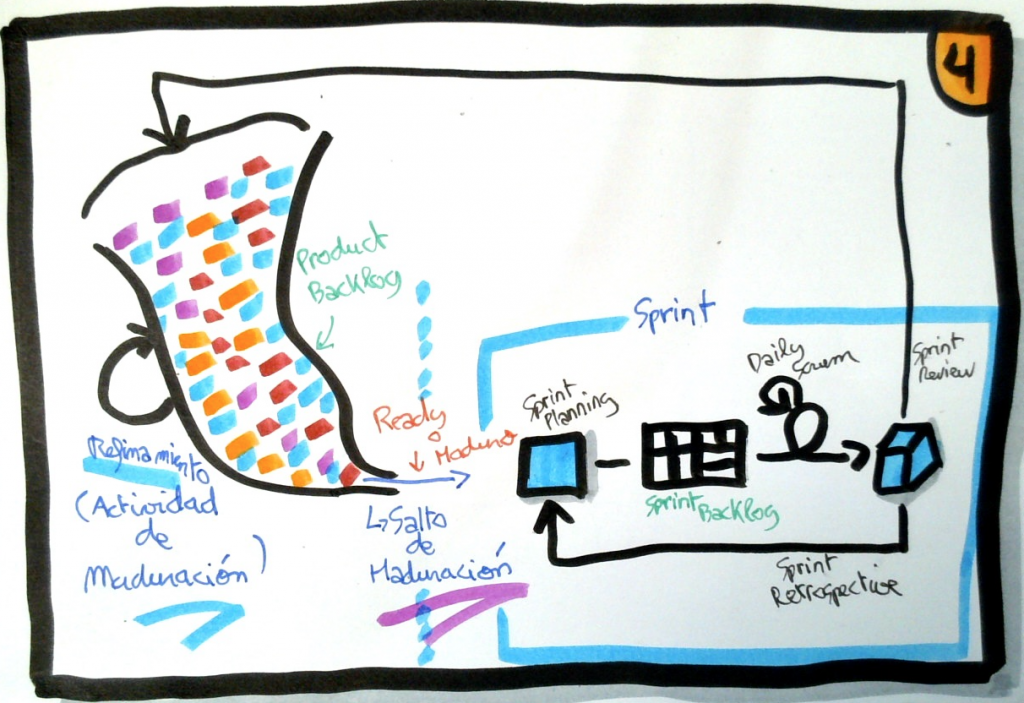 4
Product
Backlog
Sprint
Daily
Scrum
Sprint
Review
Sprint
Planning
Ready
o
Maduro
Sprint
Backlog
Refinamiento
(Actividad
de
Maduración)
↳ Salto
de
Maduración
Sprint
Retrospective